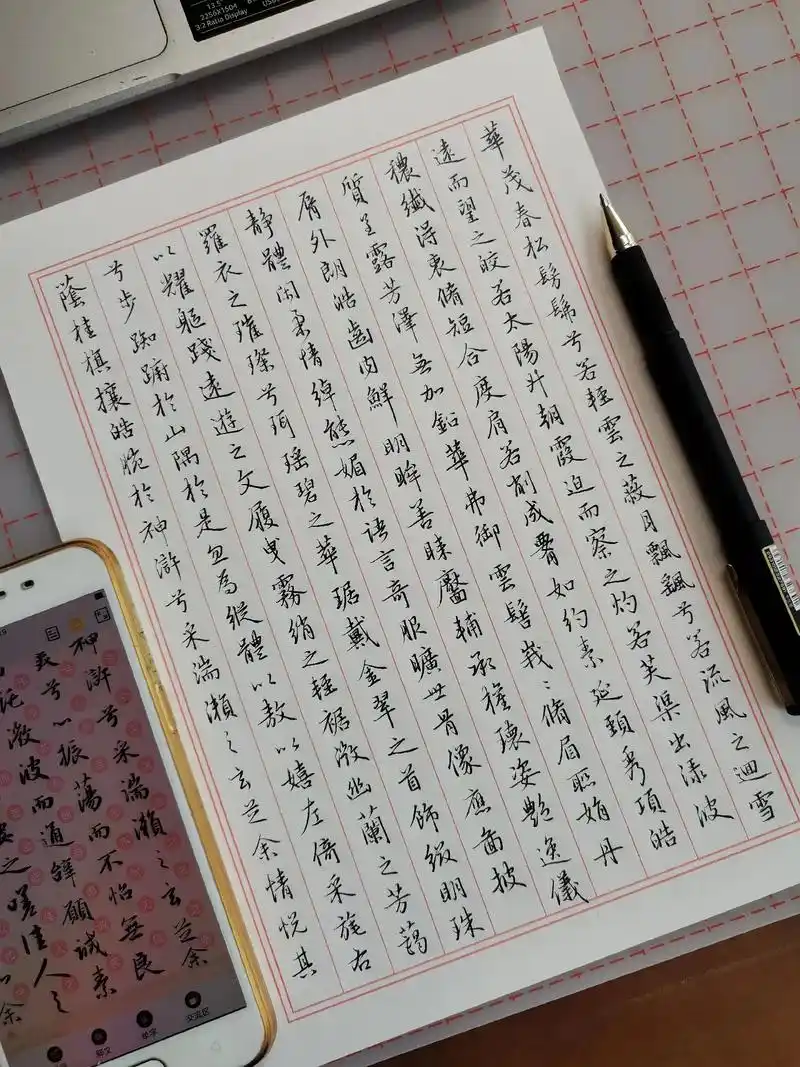 華茂春松髣髴兮若輕雲之蔽月飄颻兮若流風之迴雪
遠而望之皎若太陽升朝霞迫而察之灼若芙渠出淥波
穠纖得衷脩短合度肩若削成腰如約素延頸秀項皓
質呈露芳澤無加鉛華弗御雲髻峩〻脩眉聯娟丹
脣外朗皓齒內鮮明眸善睞靨輔承權瓌姿艷逸儀
靜體閑柔情綽態媚於語言奇服曠世骨像應圖披
羅衣之璀璨兮珥瑤碧之華琚戴金翠之首飾綴明珠
以耀軀踐遠遊之文履曳霧綃之輕裾微幽蘭之芳藹
兮步踟躕於山隅於是忽焉縱體以敖以嬉左倚采旄右
蔭桂旗攘皓腕於神滸兮采湍瀨之玄芝余情悅其
神滸兮采湍瀨之玄芝余
兮以振蕩而不怡無良
託微波而通辭願誠素
之嗟佳人之
13.5"
2256X1504
3:2 Ratio Display
單字
交流区